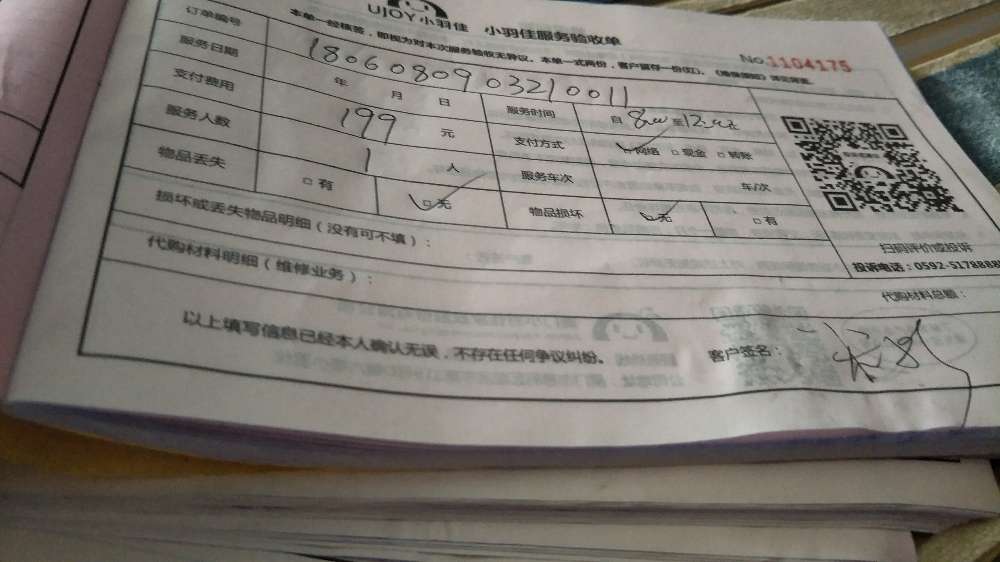 UJOY小羽佳 小羽佳服务验收单
本单一经核签，即视为对本次服务验收无异议。本单一式两份，客户留存一份(红)。
No.1104175
订单编号 1806080903210011
服务日期 年 月 日 服务时间 自 8:00 至 12:00
支付费用 199 元 支付方式 □网络 □现金 □转账
服务人数 1 人 服务车次 车/次
物品丢失 □有 □无 物品损坏 □无 □有
损坏或丢失物品明细（没有可不填）：
扫码评价或投诉
投诉电话：0592-5178888
代购材料明细（维修业务）：
代购材料总额：
以上填写信息已经本人确认无误，不存在任何争议纠纷。
客户签名：